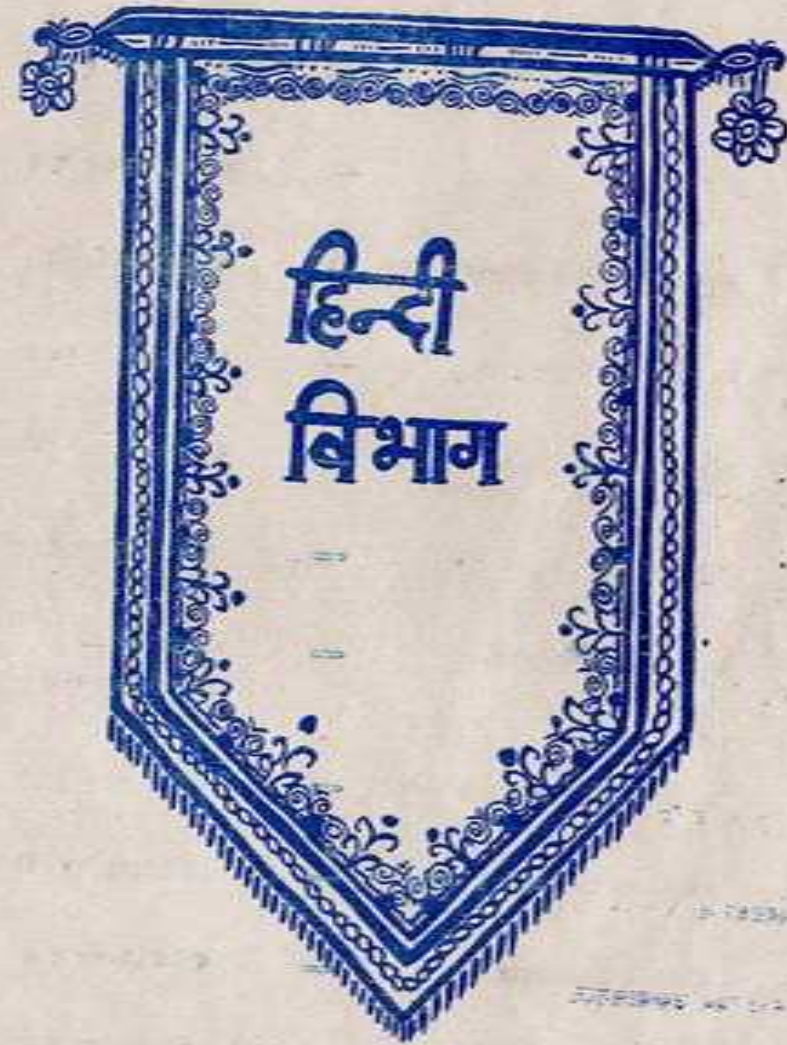 हिन्दी
विभाग